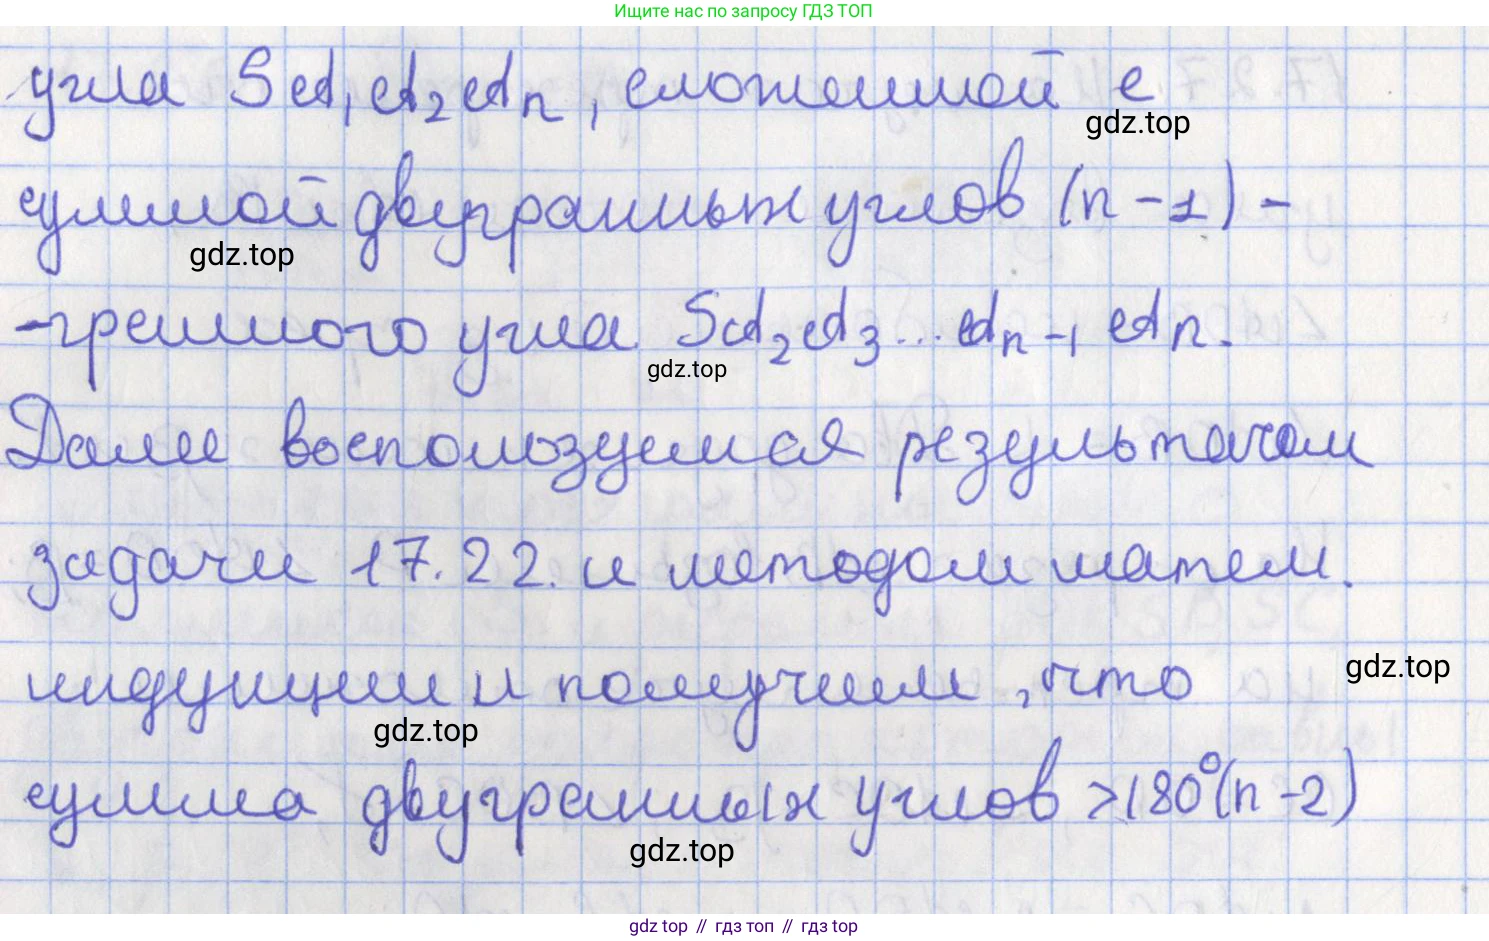 Ищите нас по запросу ГДЗ ТОП
угла SA₁A₂Aₙ, сложенной с
gdz.top
суммой двугранных углов (n-1)-
gdz.top
-гранного угла SA₂A₃...Aₙ₋₁Aₙ.
gdz.top
Далее воспользуемся результатом
задачи 17.22. и методом матем.
gdz.top
индукции и получим, что
gdz.top
сумма двугранных углов > 180°(n-2)
gdz.top
gdz top // гдз топ // gdz top